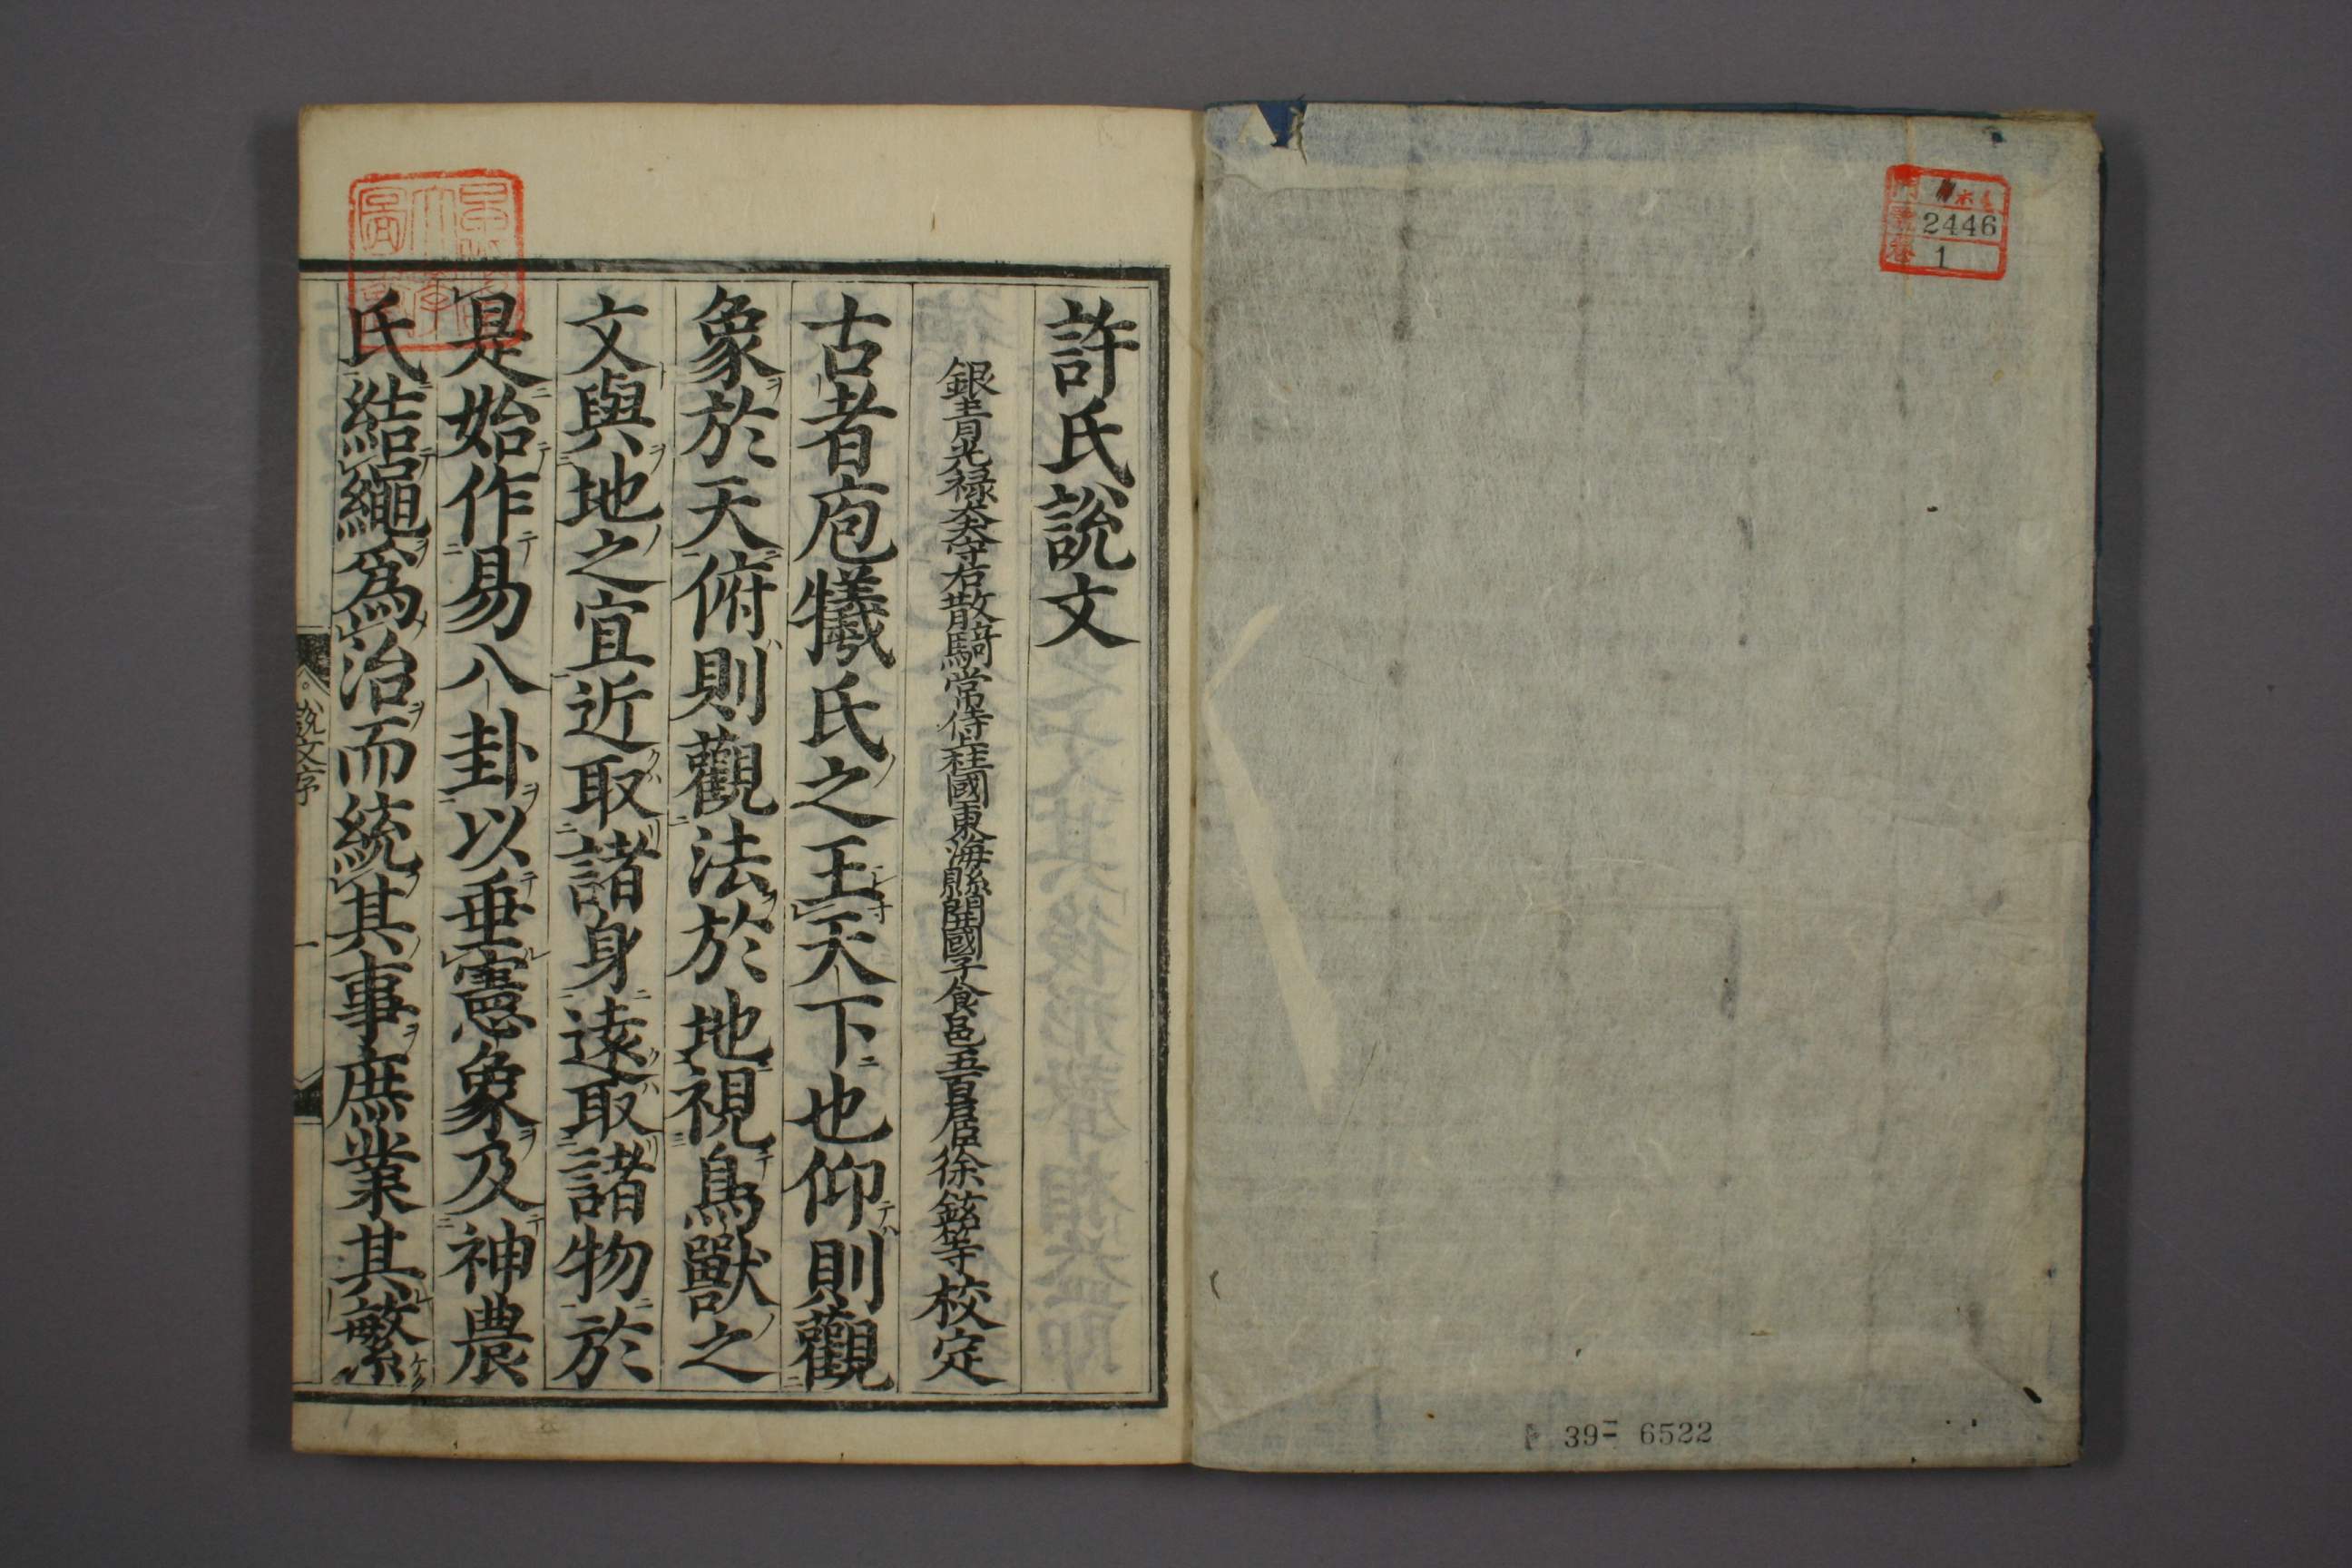 2446
1
39-6522
許氏說文
銀青光祿大夫守右散騎常侍上柱國東海縣開國子食邑五百戶臣徐鉉等校定
古者庖犧氏之王天下也仰則觀
象於天俯則觀法於地視鳥獸之
文與地之宜近取諸身遠取諸物於
是始作易八卦以垂憲象及神農
氏結繩爲治而統其事庶業其繁
說文序
一